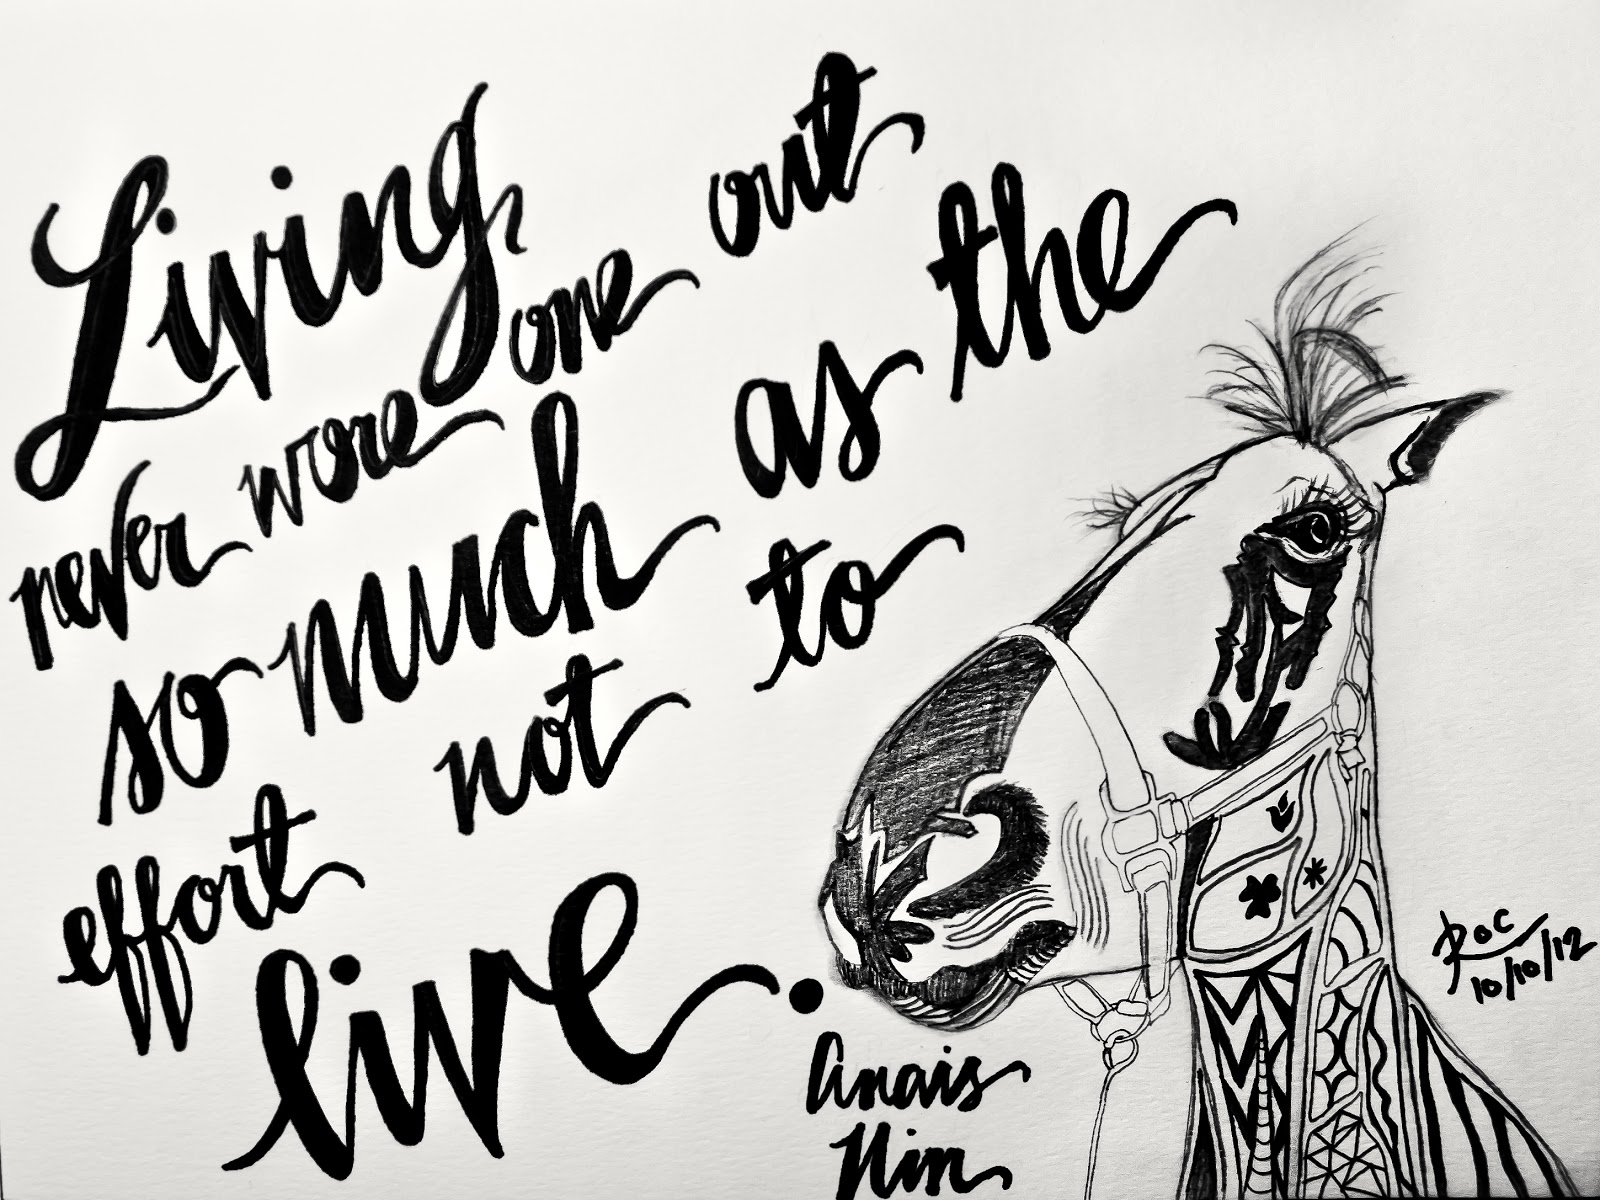 Living
never wore one out
so much as the
effort not to
live.
Anais
Nin
Roc
10/10/12